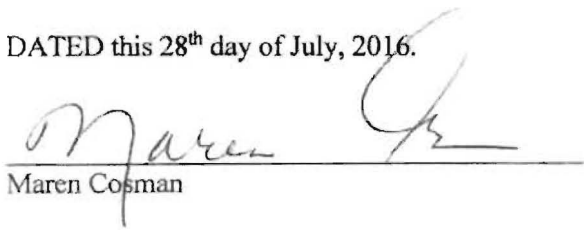 DATED this 28th day of July, 2016.
Maren
Maren Cosman